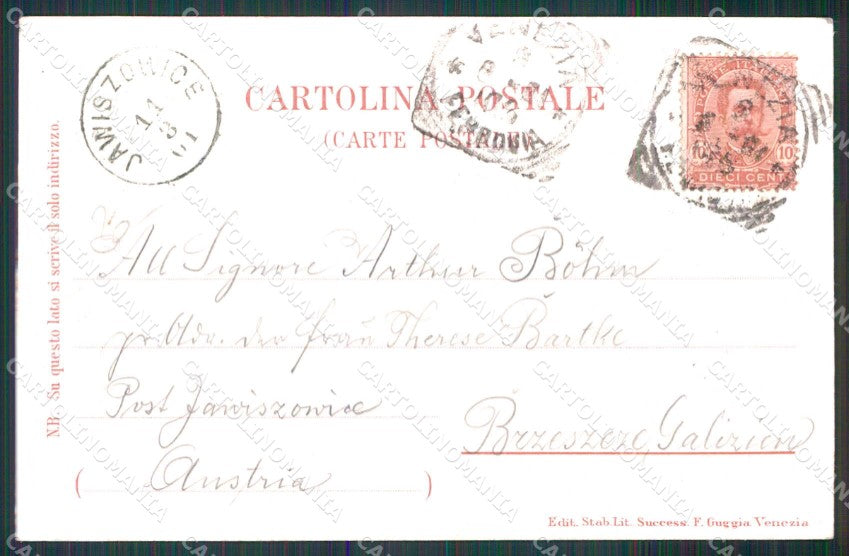 JAWISZOWICE
11
VENEZIA
FERROVIA
CARTOLINA POSTALE
(CARTE POSTALE)
10 10
DIECI CENT
N.B. Su questo lato si scrive il solo indirizzo.
All Signore Arthur Böhm
pr. Adr. der Frau Therese Bartke
Post Jawiszowice
Brzeszcze Galizien
( Austria )
Edit. Stab. Lit. Success. F. Guggia Venezia
CARTOLINOMANIA